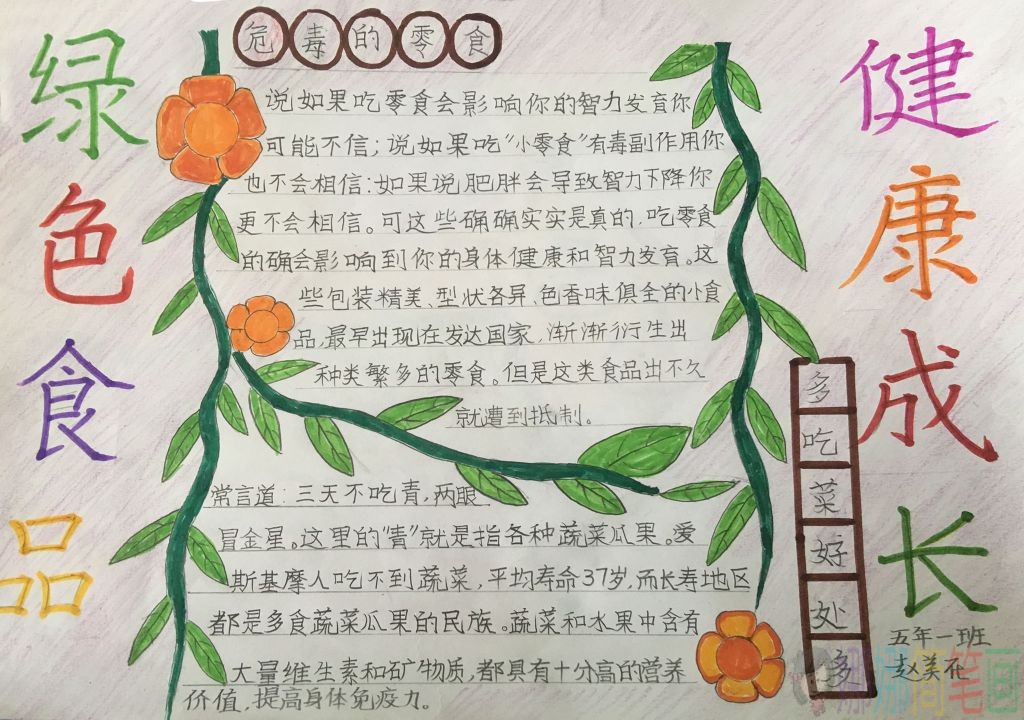 绿色食品
危毒的零食
说如果吃零食会影响你的智力发育你
可能不信；说如果吃“小零食”有毒副作用你
也不会相信；如果说肥胖会导致智力下降你
更不会相信。可这些确确实实是真的，吃零食
的确会影响到你的身体健康和智力发育。这
些包装精美、型状各异、色香味俱全的小食
品，最早出现在发达国家，渐渐衍生出
种类繁多的零食。但是这类食品出不久
就遭到抵制。
常言道：三天不吃青，两眼
冒金星。这里的“青”就是指各种蔬菜瓜果。爱
斯基摩人吃不到蔬菜，平均寿命37岁，而长寿地区
都是多食蔬菜瓜果的民族。蔬菜和水果中含有
大量维生素和矿物质，都具有十分高的营养
价值，提高身体免疫力。
多吃菜好处多
健康成长
五年一班
赵美花
简笔画